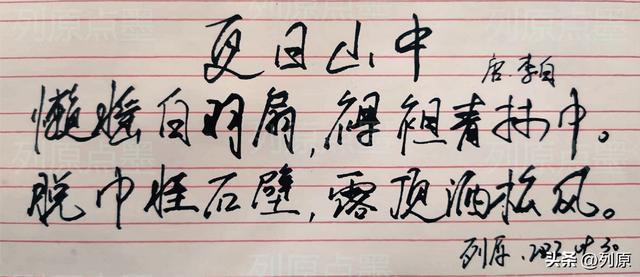 列原点墨
夏日山中
唐.李白
懒摇白羽扇,裸袒青林中。
脱巾挂石壁,露顶洒松风。
列原
头条 @列原